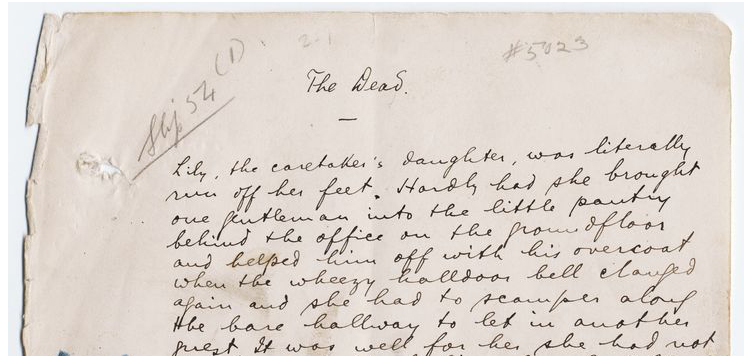 (1)
#5023
Slip 54
The Dead.
Lily, the caretaker's daughter, was literally
run off her feet. Hardly had she brought
one gentleman into the little pantry
behind the office on the groundfloor
and helped him off with his overcoat
when the wheezy halldoor bell clanged
again and she had to scamper along
the bare hallway to let in another
guest. It was well for her she had not